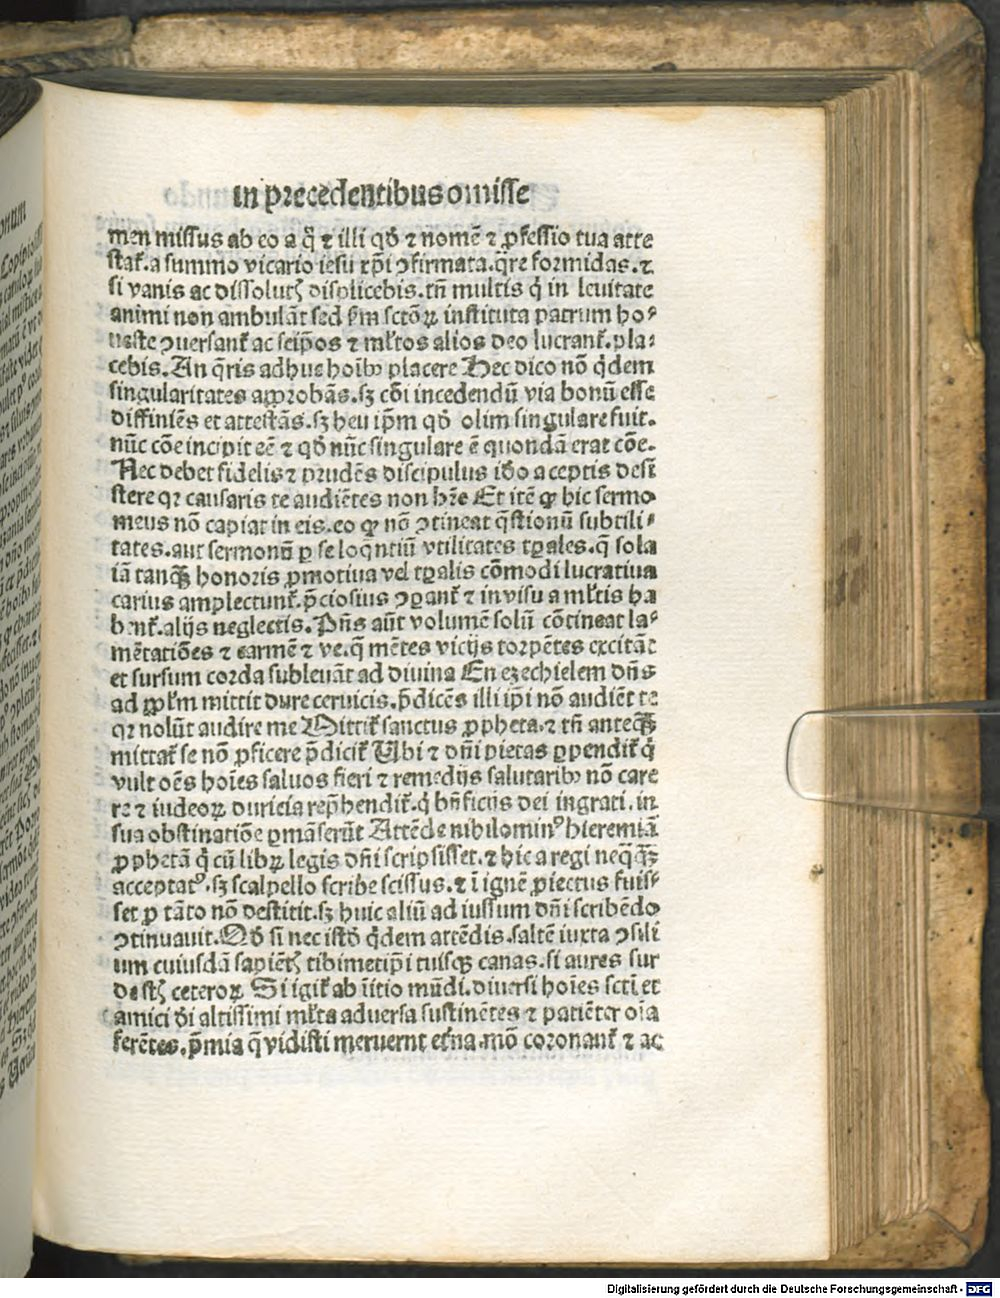 in precedentibus omisse
men missus ab eo a q̃ ⁊ illi qđ ⁊ nomē ⁊ ꝓfessio tua atte
staƭ. a summo vicario iesu xp̄i ꝯfirmata. q̃re formidas. ⁊
si vanis ac dissolutꝭ displicebis. tñ multis q̇ in leuitate
animi non ambulāt sed s̄m sctōꝝ instituta patrum ho⸗
neste ꝯuersanƭ ac seip̄os ⁊ ml̄tos alios deo lucranƭ. pla⸗
cebis. An q̄ris adhuc hoībꝰ placere Hec dico nō q̇dem
singularitates aꝓprobās. sꝫ cōi incedendū via bonū esse
diffiniēs et attestās. sꝫ heu ip̄m qđ olim singulare fuit.
nūc cōe incipit eē ⁊ qđ nūc singulare ē quondā erat cōe.
Nec debet fidelis ⁊ prudēs discipulus iđo a ceptis desi
stere qꝛ causaris te audiētes non hr̄e Et itē ꝙ hic sermo
meus nō capiat in eis. eo ꝙ nō ꝯtineat q̄stionū subtili⸗
tates. aut sermonū ꝑ se loq̄ntiū vtilitates tꝑales. q̄ sola
iā tanꝙ̄ honoris ꝓmotiua vel tꝑalis cōmodi lucratiua
carius amplectunƭ. p̄ciosius ꝯꝑanƭ ⁊ in visu a ml̄tis ha
benƭ. alijs neglectis. Pn̄s aūt volumē solū cōtineat la⸗
mētatiōes ⁊ carmē ⁊ ve. q̄ mētes vicijs torpētes excitāt
et sursum corda subleuāt ad diuina En ezechielem dn̄s
ad ꝓpl̄m mittit dure ceruicis. p̄dicēs illi ip̄i nō audiēt te
qꝛ nolūt audire me Mittiƭ sanctus ꝓpheta. ⁊ tñ anteꝙ̄
mittaƭ se nō ꝓficere p̄diciƭ Ubi ⁊ dn̄i pietas ꝑpendiƭ q̇
vult oēs hoīes saluos fieri ⁊ remedijs salutaribꝰ nō care
re ⁊ iudeoꝝ duricia rep̄hendiƭ. q̇ bn̄ficijs dei ingrati. in
sua obstinatiōe ꝑmāserūt Attēde nihilominꝰ hieremiā
ꝓphetā q̇ cū libꝝ legis dn̄i scripsisset. ⁊ hic a regi neq̄ꝙ̄
acceptatꝰ. sꝫ scalpello scribe scissus. ⁊ ī ignē ꝓiectus fuis⸗
set ꝓ tāto nō destitit. sꝫ huic aliū ad iussum dn̄i scribēdo
ꝯtinuauit. Qđ si nec istđ q̇dem attēdis. saltē iuxta ꝯsili
um cuiusdā sapiētꝭ tibimetip̄i tuisqꝫ canas. si aures sur
de stꝭ ceteroꝝ. Si igiƭ ab īitio mūdi. diuersi hoīes scti et
amici đi altissimi ml̄ta aduersa sustinētes ⁊ patiēter oīa
ferētes. p̄mia q̄ vidisti meruernt eƭna. mō coronanƭ ⁊ ac
Digitalisierung gefördert durch die Deutsche Forschungsgemeinschaft - DFG